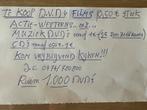 Te Koop D.V.D's Films 0,50 € stuk
Actie - Westerns ... enz ..
Muziek D.V.D's vanaf 1 €
CD's vanaf
Kom vrijblijvend kijken !!!
Ruim 1.000 DVD's